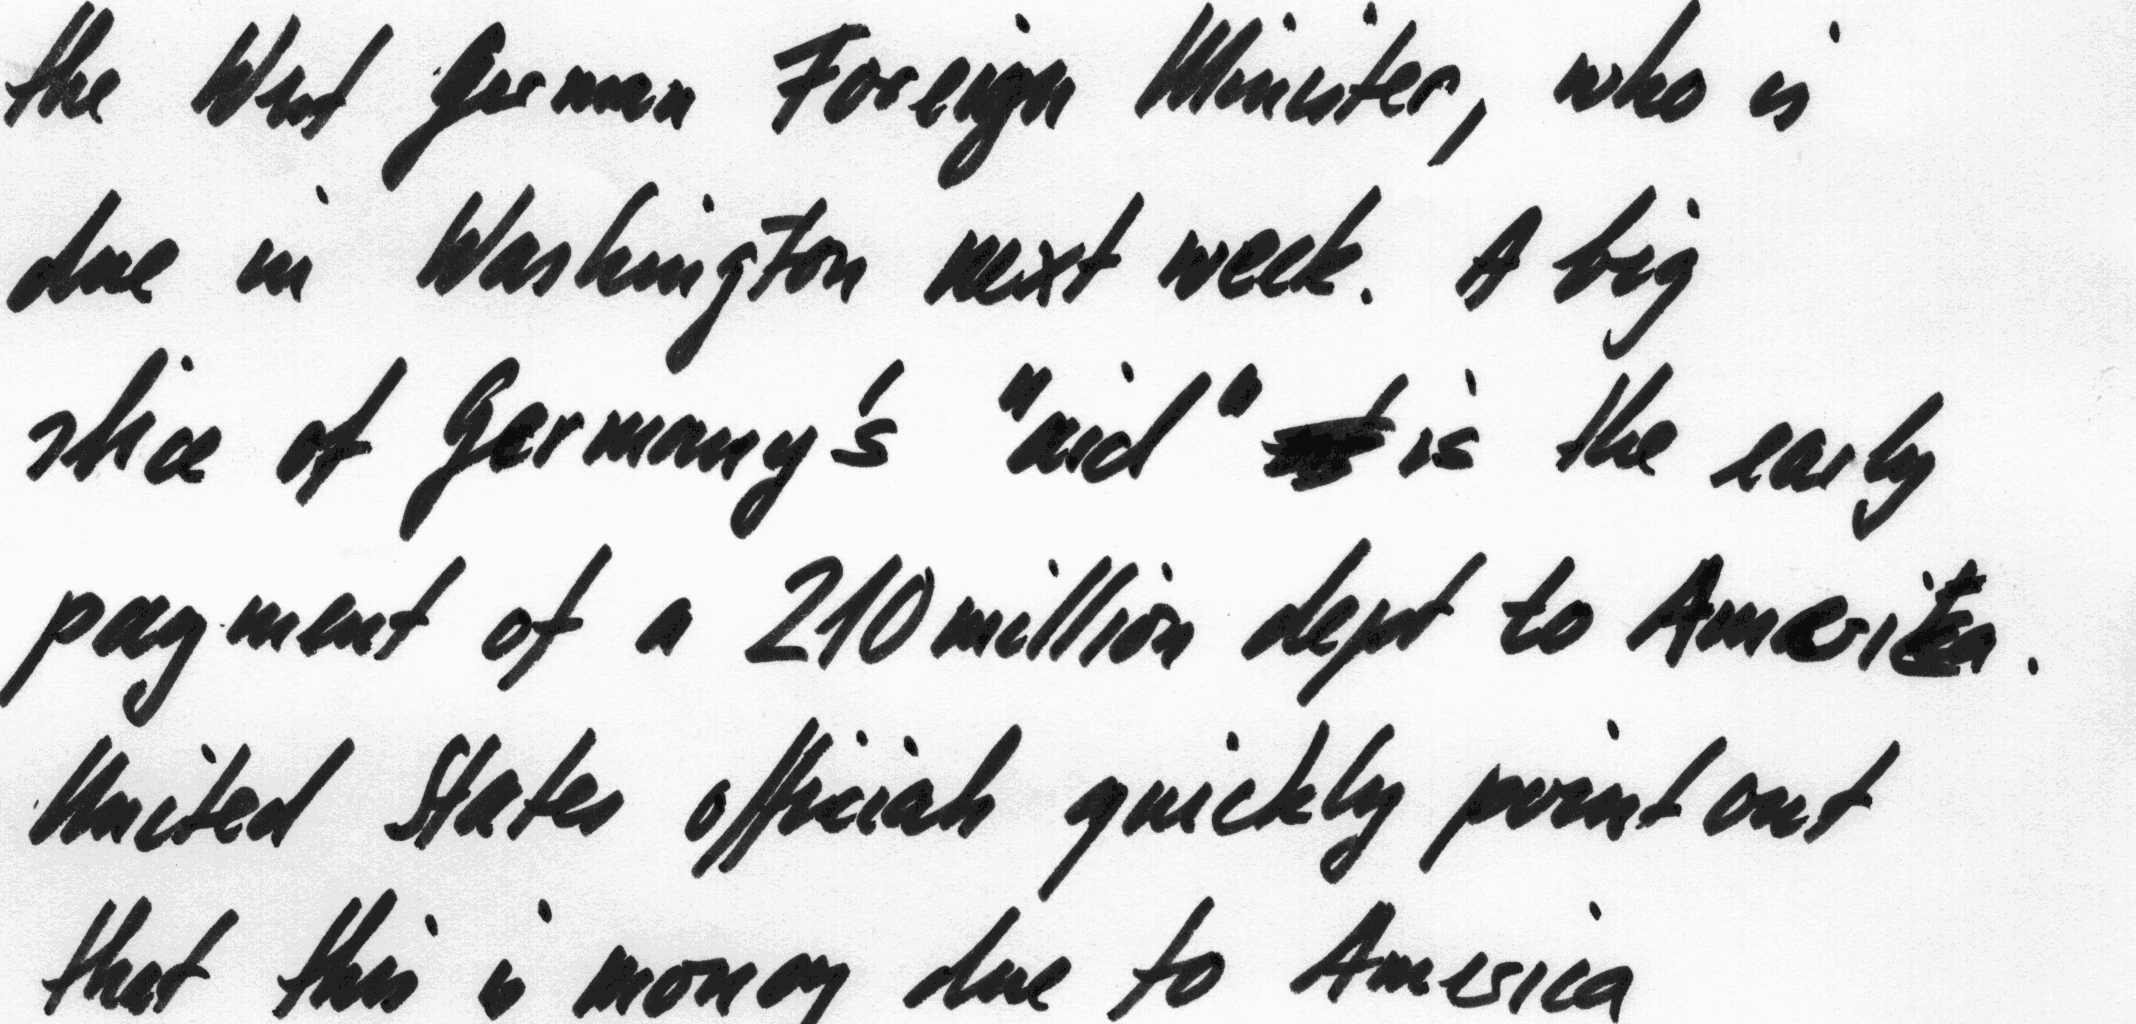 the West German Foreign Minister, who is
due in Washington next week. A big
slice of Germany's "aid" is the early
payment of a 210 million dept to America.
United States officials quickly point out
that this is money due to America